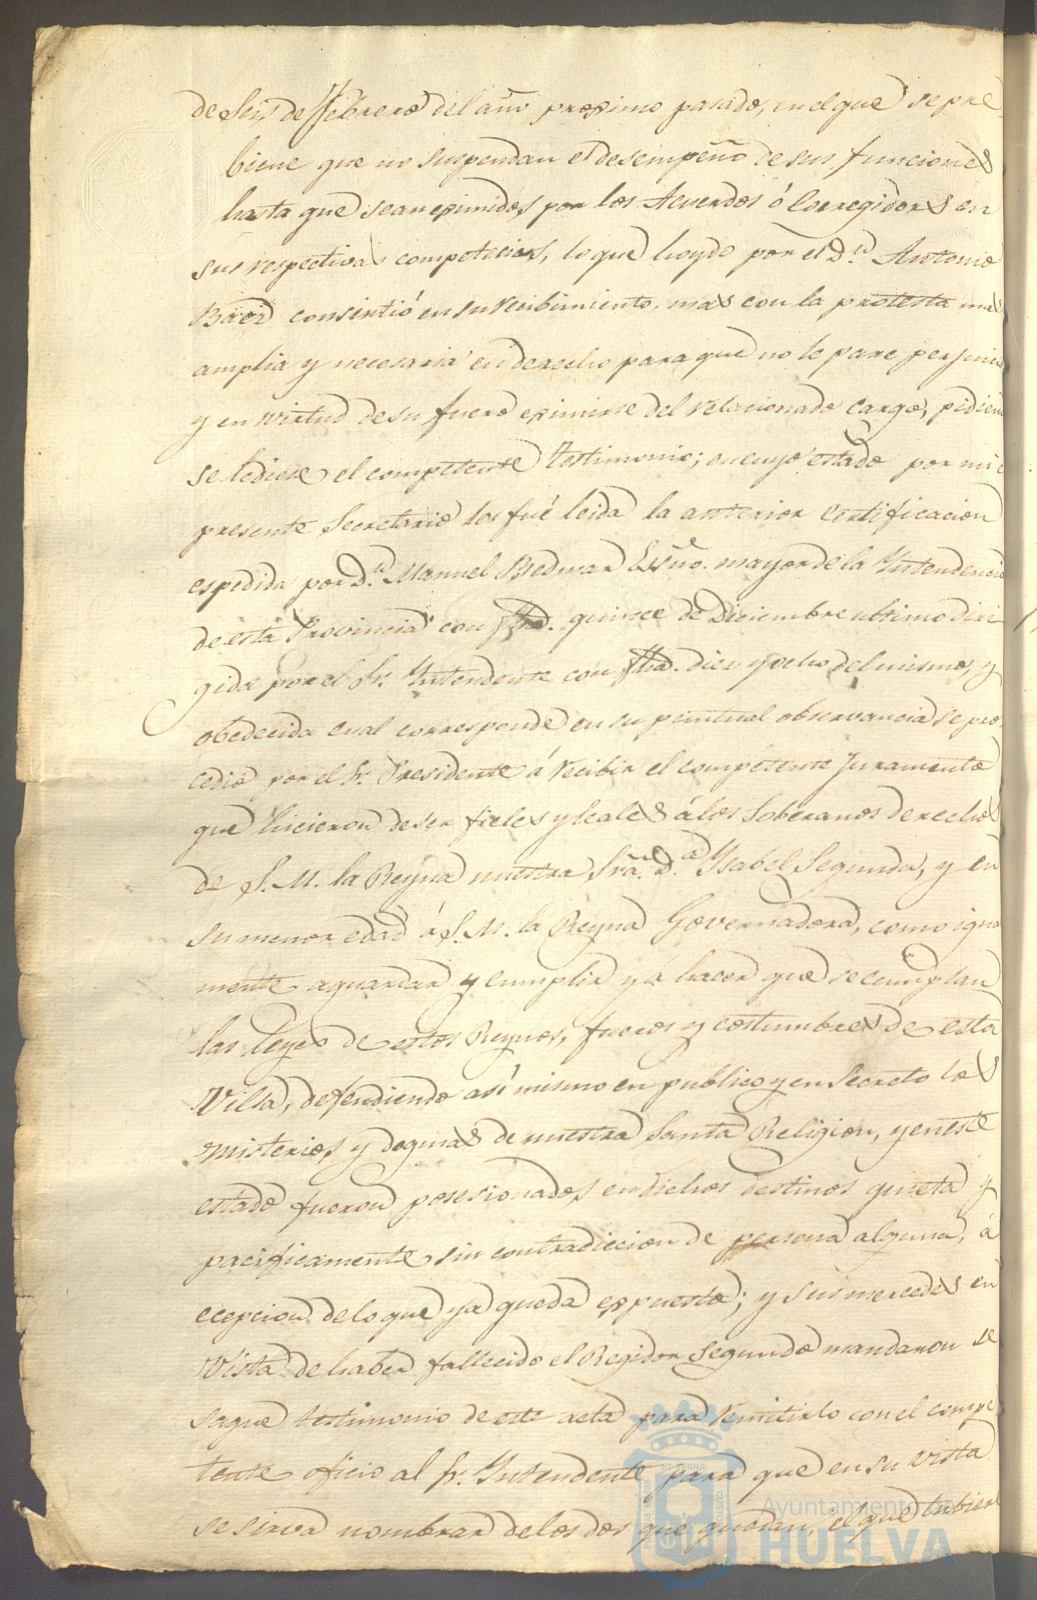 de Seis de Febrero del año proximo pasado, en el que se pre
biene que no suspendan el desempeño de sus funciones
hasta que sean eximidos por los Acuerdos ó Corregidores en
sus respectivas competecias, lo que hoydo por el D.n Antonio
Baez consintió en su recibimiento, mas con la protesta mas
amplia y necesaria en derecho para que no le pare perjuicio
y en virtud de su fuero eximirse del relacionado cargo, pidiendo
se le diese el competente testimonio; en cuyo estado por mi el
presente Secretario les fué leida la anterior certificacion
espedida por D.n Manuel Bedmar Essno. mayor de la Yntendencia
de esta Provincia con fha. quince de Diciembre ultimo diri
gida por el Sr. Yntendente con fha. diez y ocho del mismo, y
obedecida cual corresponde en su puntual observancia se pro
cedió por el Sr. Presidente á recibir el competente Juramento
que hicieron de ser fieles y leales á los Soberanos derechos
de S. M. la Reyna nuestra Sra. D.a Ysabel Segunda, y en
su menor edad á S. M. la Reyna Governadora, como igual
mente aguardar y cumplir y a hacer que se cumplan
las leyes de estos Reynos, fueros y costumbres de esta
Villa, defendiendo asi mismo en publico y en Secreto los
misterios y dogmas de nuestra Santa Religion, y en este
estado fueron posesionados en dichos destinos quieta y
pacificamente sin contradiccion de persona alguna, á
ecepcion de lo que ya queda expuesto; y sus mercedes en
Vista de haber fallecido el Regidor Segundo mandaron se
saque testimonio de este acta para remitirlo con el compe
tente oficio al Sr. Yntendente para que en su vista
se sirva nombrar de los dos que quedan, el que tubiere
Ayuntamiento de
HUELVA